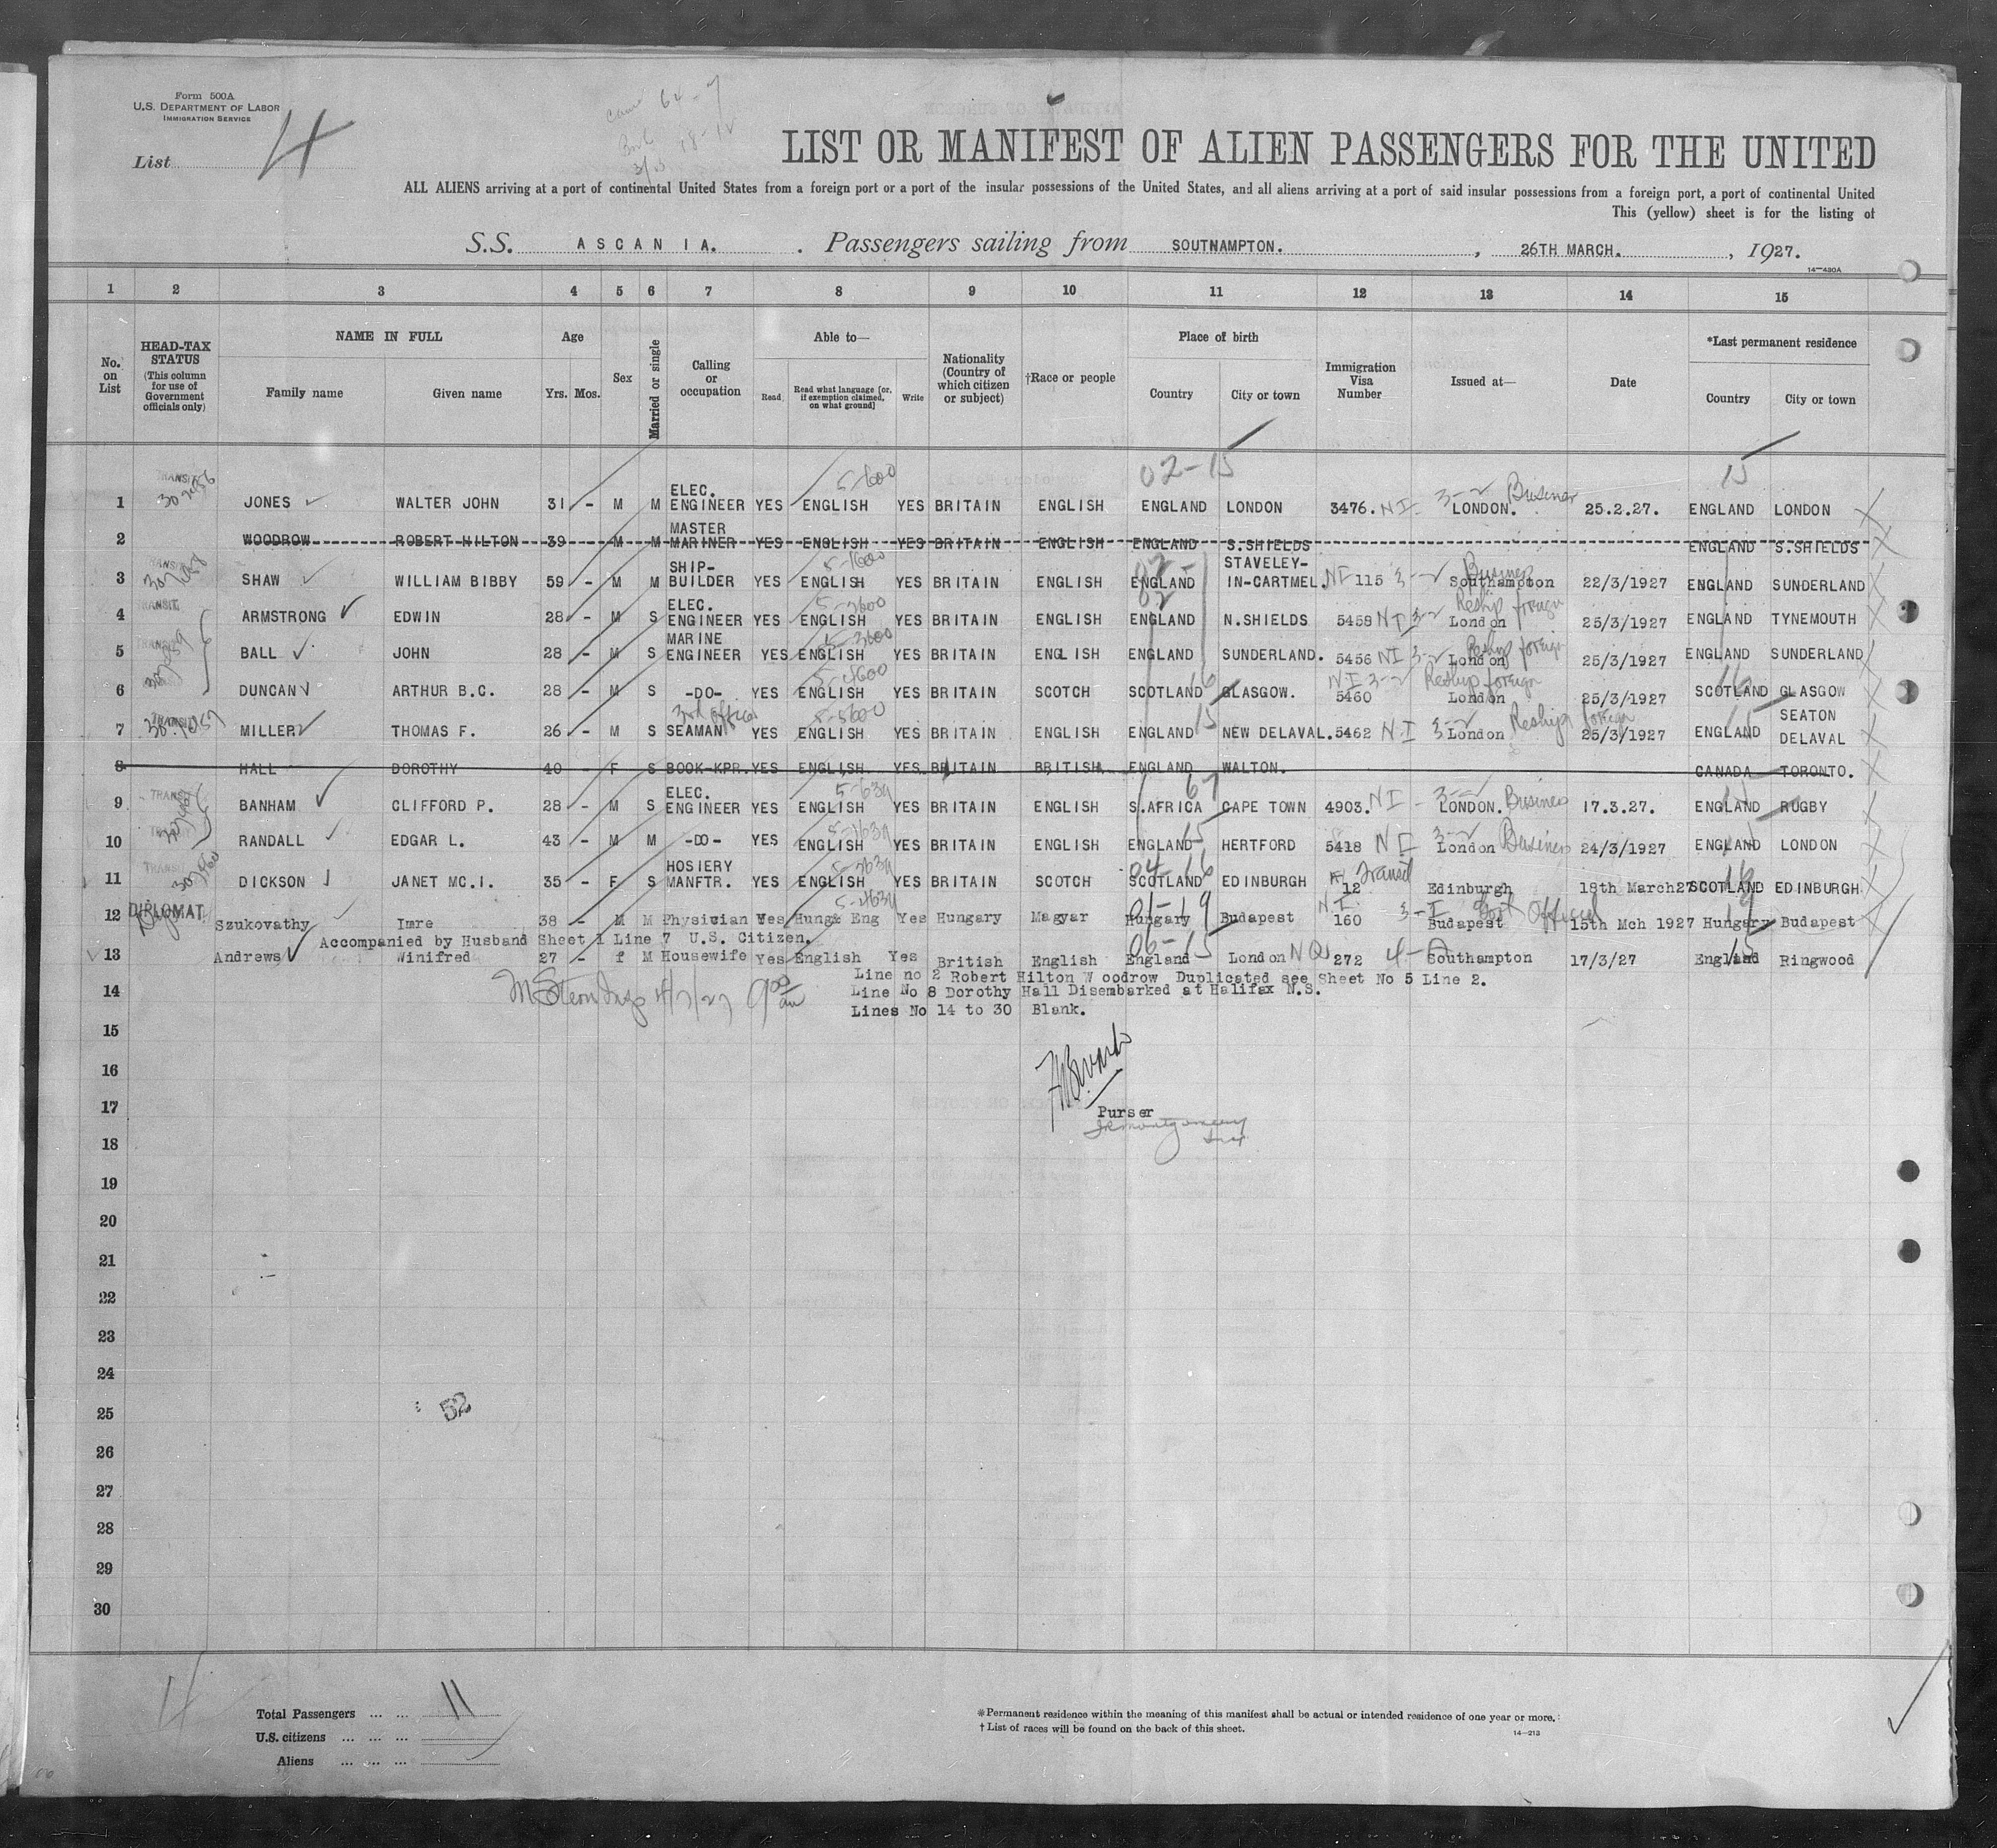 Form 500A
U.S. DEPARTMENT OF LABOR
IMMIGRATION SERVICE
List 4
LIST OR MANIFEST OF ALIEN PASSENGERS FOR THE UNITED
ALL ALIENS arriving at a port of continental United States from a foreign port or a port of the insular possessions of the United States, and all aliens arriving at a port of said insular possessions from a foreign port, a port of continental United
This (yellow) sheet is for the listing of
S.S. ASCANIA. Passengers sailing from SOUTHAMPTON. , 26TH MARCH. , 1927.
14—430A
1 2 3 4 5 6 7 8 9 10 11 12 13 14 15
No. on List
HEAD-TAX STATUS (This column for use of Government officials only)
NAME IN FULL
Family name Given name
Age
Yrs. Mos.
Sex
Married or single
Calling or occupation
Able to—
Read Read what language [or, if exemption claimed, on what ground] Write
Nationality (Country of which citizen or subject)
†Race or people
Place of birth
Country City or town
Immigration Visa Number
Issued at—
Date
*Last permanent residence
Country City or town
02-15 15
5-600
1 TRANSIT JONES WALTER JOHN 31 - M M ELEC. ENGINEER YES ENGLISH YES BRITAIN ENGLISH ENGLAND LONDON 3476. NI Business LONDON. 25.2.27. ENGLAND LONDON
2 WOODROW ROBERT HILTON 39 M M MASTER MARINER YES ENGLISH YES BRITAIN ENGLISH ENGLAND S.SHIELDS ENGLAND S.SHIELDS
3 SHAW WILLIAM BIBBY 59 - M M SHIP-BUILDER YES ENGLISH YES BRITAIN ENGLISH ENGLAND STAVELEY-IN-CARTMEL. NI 115 Business Southampton 22/3/1927 ENGLAND SUNDERLAND
4 TRANSIT ARMSTRONG EDWIN 28 - M S ELEC. ENGINEER YES ENGLISH YES BRITAIN ENGLISH ENGLAND N.SHIELDS 5458 NI Reship foreign London 25/3/1927 ENGLAND TYNEMOUTH
5 BALL JOHN 28 - M S MARINE ENGINEER YES ENGLISH YES BRITAIN ENGLISH ENGLAND SUNDERLAND. 5456 NI Reship foreign London 25/3/1927 ENGLAND SUNDERLAND
6 DUNCAN ARTHUR B.C. 28 - M S -DO- YES ENGLISH YES BRITAIN SCOTCH SCOTLAND GLASGOW. NI 5460 Reship foreign London 25/3/1927 SCOTLAND GLASGOW
7 TRANSIT MILLER THOMAS F. 26 - M S 3rd officer SEAMAN YES ENGLISH YES BRITAIN ENGLISH ENGLAND NEW DELAVAL. 5462 NI London Reship foreign 25/3/1927 ENGLAND SEATON DELAVAL
8 HALL DOROTHY 40 - F S BOOK-KPR. YES ENGLISH YES BRITAIN BRITISH ENGLAND WALTON. CANADA TORONTO.
9 BANHAM CLIFFORD P. 28 - M S ELEC. ENGINEER YES ENGLISH YES BRITAIN ENGLISH S.AFRICA CAPE TOWN 4903. NI LONDON. Business 17.3.27. ENGLAND RUGBY
10 RANDALL EDGAR L. 43 - M M -DO- YES ENGLISH YES BRITAIN ENGLISH ENGLAND HERTFORD 5418 NI London Business 24/3/1927 ENGLAND LONDON
11 TRANSIT DICKSON JANET MC.I. 35 - F S HOSIERY MANFTR. YES ENGLISH YES BRITAIN SCOTCH SCOTLAND EDINBURGH 12 Transit Edinburgh 18th March27 SCOTLAND EDINBURGH
12 DIPLOMAT Szukovathy Imre 38 - M M Physician Yes Hung& Eng Yes Hungary Magyar Hungary Budapest N.I. 160 3-I Govt Official Budapest 15th Mch 1927 Hungary Budapest
Accompanied by Husband Sheet 1 Line 7 U.S. Citizen.
13 Andrews Winifred 27 - f M Housewife Yes English Yes British English England London NQ 272 Southampton 17/3/27 England Ringwood
Line no 2 Robert Hilton Woodrow Duplicated see Sheet No 5 Line 2.
14 Line No 8 Dorothy Hall Disembarked at Halifax N.S.
Lines No 14 to 30 Blank.
15
16
17
Purser
18
19
20
21
22
23
24
25 52
26
27
28
29
30
Total Passengers ... ... 11
U.S. citizens ... ... ...
Aliens ... ... ...
*Permanent residence within the meaning of this manifest shall be actual or intended residence of one year or more.
†List of races will be found on the back of this sheet.
14—213